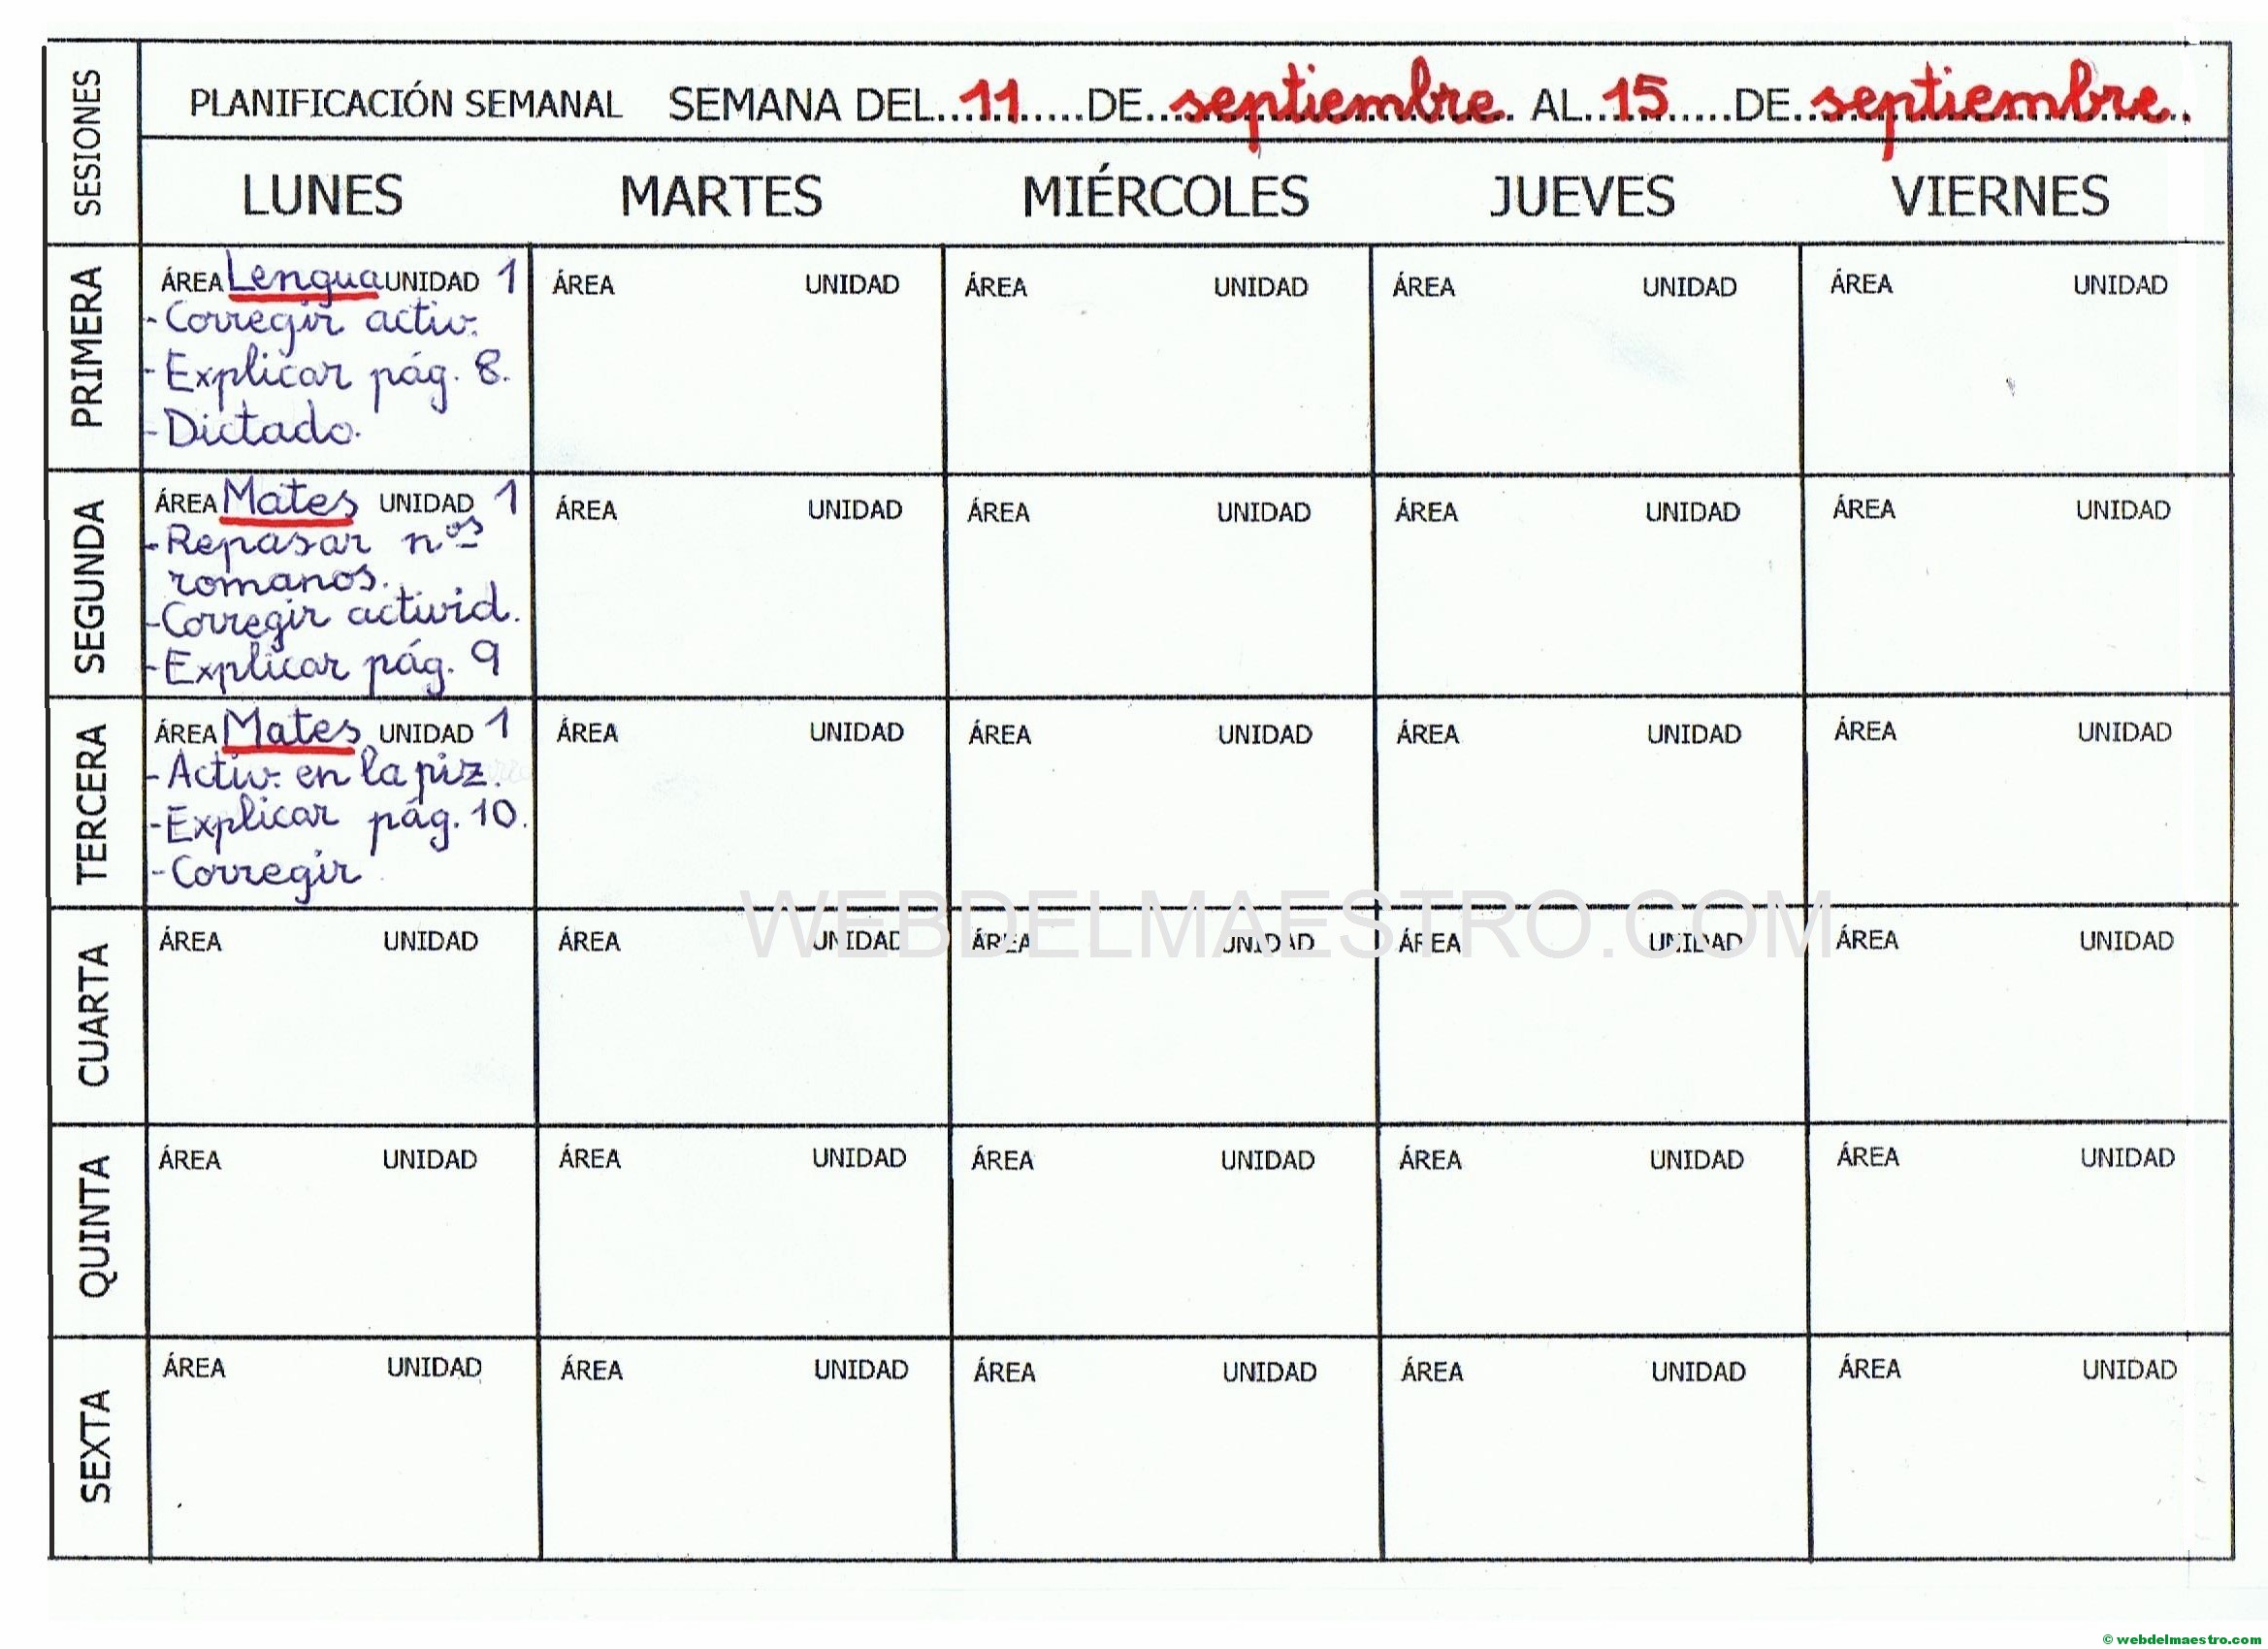 SESIONES
PLANIFICACIÓN SEMANAL SEMANA DEL...11...DE...septiembre. AL...15...DE...septiembre.
LUNES MARTES MIÉRCOLES JUEVES VIERNES
PRIMERA
ÁREA Lengua UNIDAD 1
- Corregir activ.
- Explicar pág. 8.
- Dictado.
ÁREA UNIDAD
ÁREA UNIDAD
ÁREA UNIDAD
ÁREA UNIDAD
SEGUNDA
ÁREA Mates UNIDAD 1
- Repasar nºs
romanos.
- Corregir activid.
- Explicar pág. 9
ÁREA UNIDAD
ÁREA UNIDAD
ÁREA UNIDAD
ÁREA UNIDAD
TERCERA
ÁREA Mates UNIDAD 1
- Activ. en la piz.
- Explicar pág. 10.
- Corregir
ÁREA UNIDAD
ÁREA UNIDAD
ÁREA UNIDAD
ÁREA UNIDAD
WEBDELMAESTRO.COM
CUARTA
ÁREA UNIDAD
ÁREA UNIDAD
ÁREA UNIDAD
ÁREA UNIDAD
ÁREA UNIDAD
QUINTA
ÁREA UNIDAD
ÁREA UNIDAD
ÁREA UNIDAD
ÁREA UNIDAD
ÁREA UNIDAD
SEXTA
ÁREA UNIDAD
ÁREA UNIDAD
ÁREA UNIDAD
ÁREA UNIDAD
ÁREA UNIDAD
© webdelmaestro.com